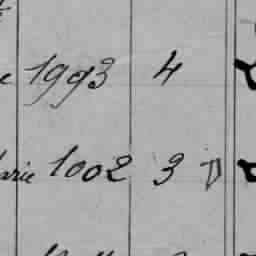 1993 4
arie 1002 3